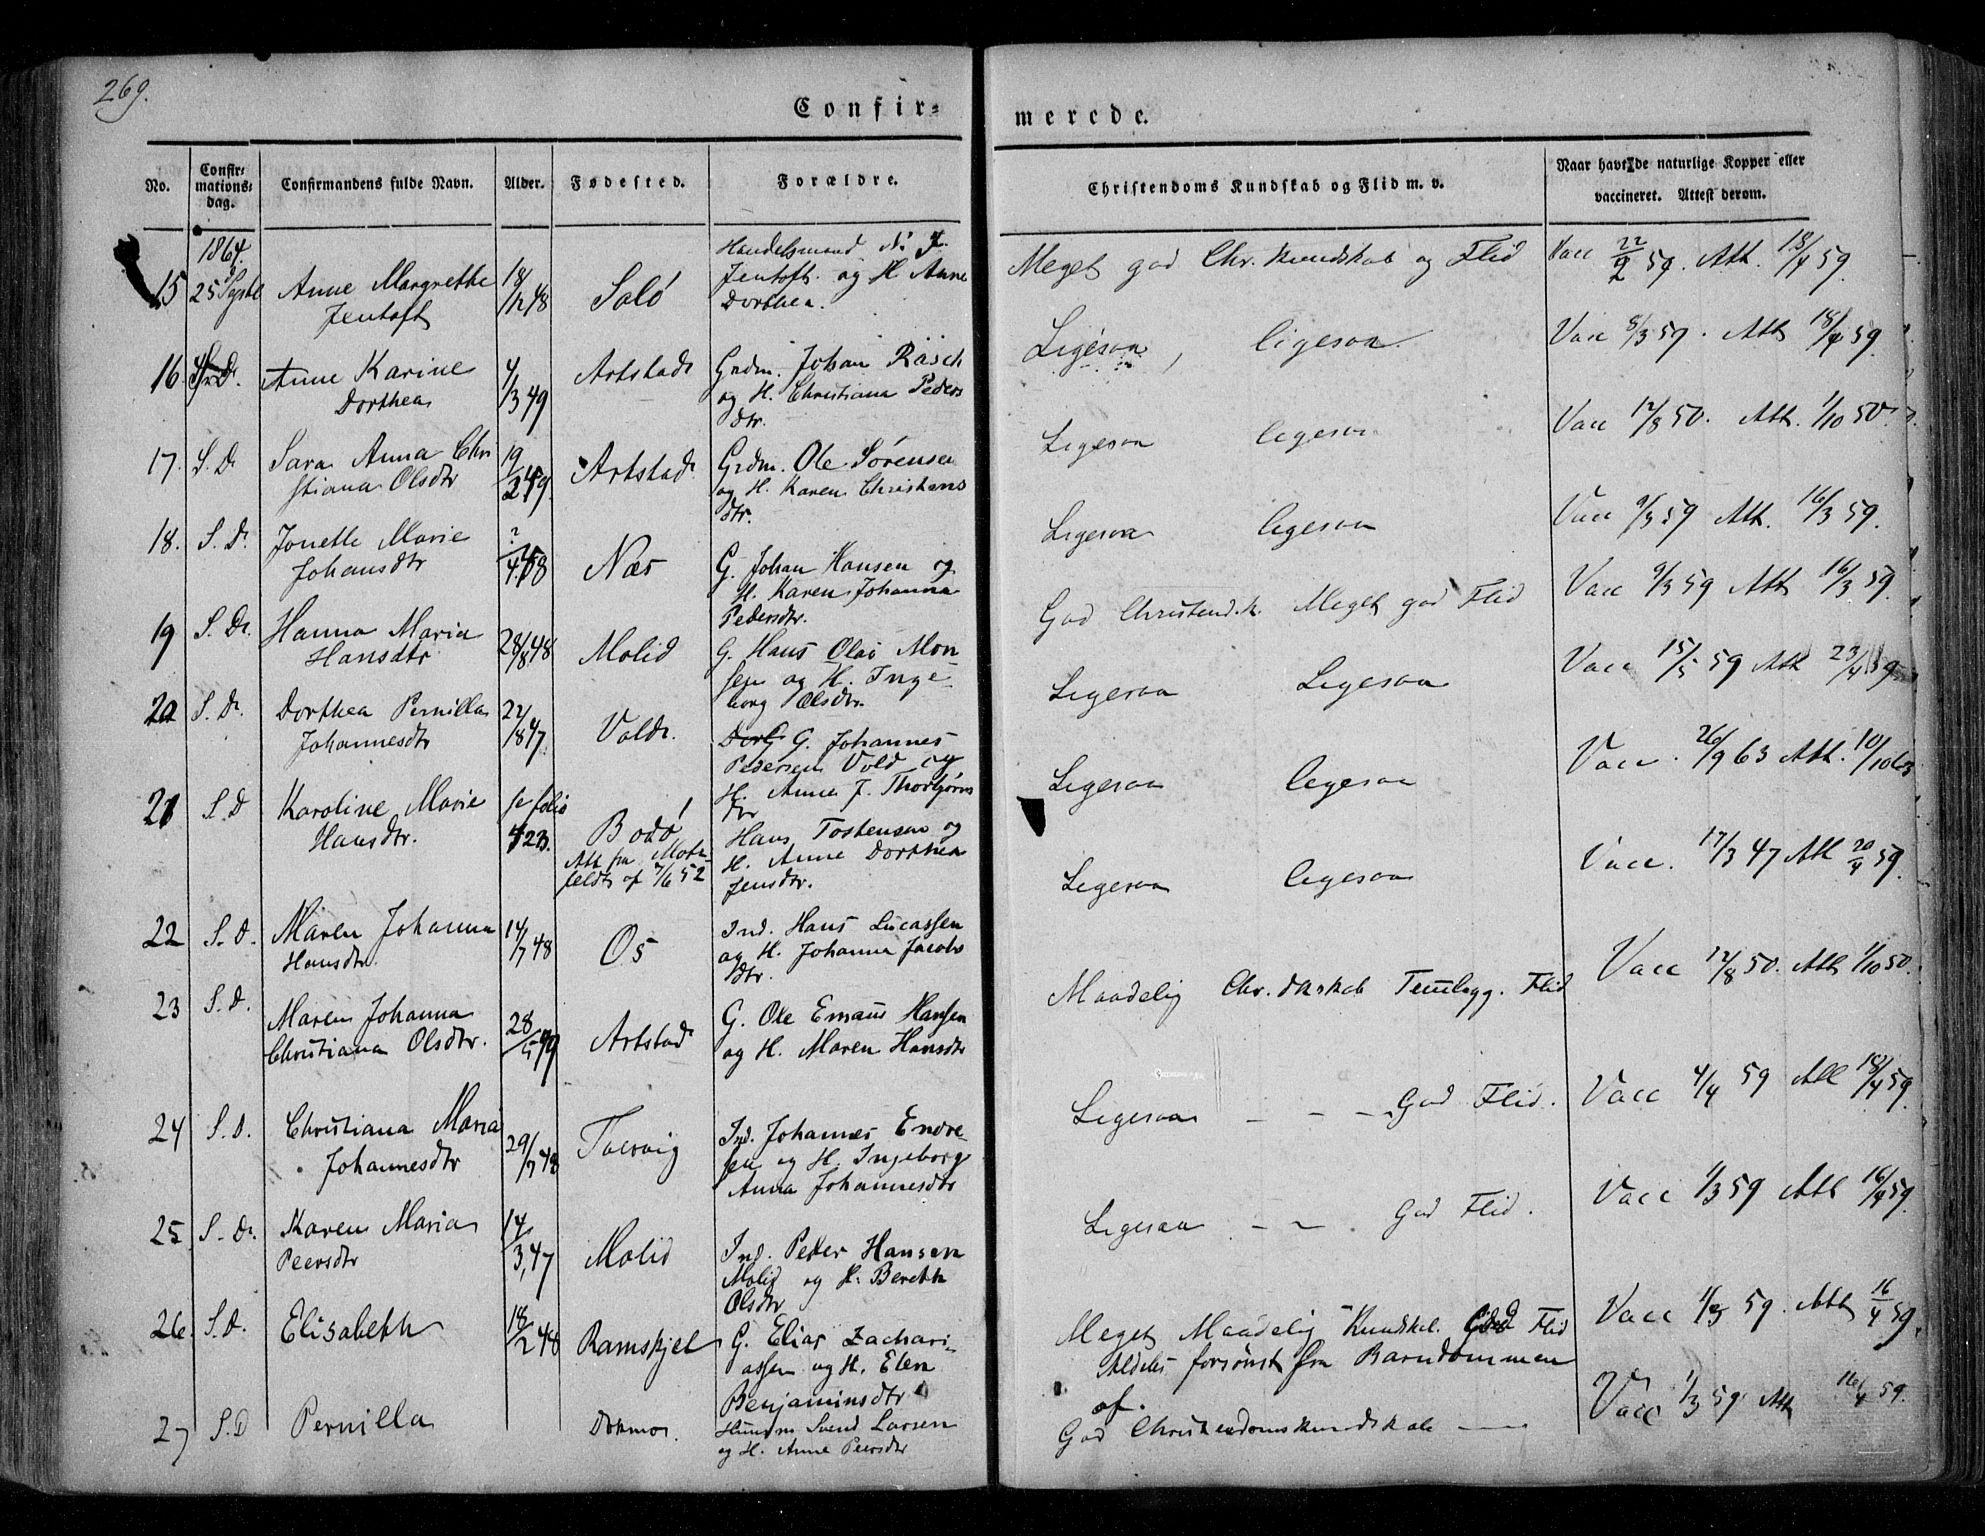 269.
Confir=
merede.
No.
Confir=
mations=
dag.
Confirmandens fulde Navn.
Alder.
Fødested.
Forældre.
Christendoms Kundskab og Flid m. v.
Naar havt de naturlige Kopper eller
vaccineret. Attest derom.
1864
15 25 Anne Margrethe 18/12 48 Solö Handelsmand
Jentoft Jentoft og H. Anne
Dorthea.
Meget god Chr. Kundskab og Flid Vacc 22/2 59. Att. 18/4 59.
16. S. D. Anne Karine 4/3 49 Artstad Grdm. Johan Räsch
Dorthea og H. Christiana Peders
dtr.
Ligesaa, ligesaa Vacc 8/3 59. Att 18/4 59.
17. S. D. Sara Anna Chri 19/2 49. Artstad Grdm. Ole Sörensen
stiana Olsdtr og H. Karen Christens
dtr.
Ligesaa ligesaa Vacc 12/8 50. Att. 1/10 50.
18. S. D. Jonette Marie ?/4 48 Næs G. Johan Hansen og
Johansdtr H. Karen Johanna
Pedersdtr.
Ligesaa ligesaa Vacc 9/3 59 Att. 16/3 59.
19 S. D. Hanna Maria 28/8 48 Molid G. Hans Olai Mon
Hansdtr sen og H. Inge
borg Olsdtr
God Christend.k. Meget god Flid Vacc 9/3 59 Att 16/3 59.
20 S. D. Dorthea Pernilla 22/8 47. Vold. G. Johannes
Johannesdtr Pedersen Vold og
H. Anna J. Thorbjörns
dtr
Ligesaa Ligesaa Vacc 15/5 59 Att 23/4 59
21 S. D Karoline Marie se folio Bodö Hans Tostensen og
Hansdtr. 423. Att fra
af 7/6 52 H. Anne Dorthea
Jensdtr.
Ligesaa ligesaa Vacc. 26/9 63 Att. 10/10 63
22 S. D. Maren Johanna 14/7 48 Os Ind. Hans Lucassen
Hansdtr. og H. Johanna Jacobs
dtr.
Ligesaa ligesaa Vacc. 17/3 47 Att 20/4 59.
23 S. D. Maren Johanna 28/5 49 Artstad G. Ole Emaus Hansen
Christiana Olsdtr. og H. Maren Hansdtr
Maadelig Chr.dkskab Temlgg. Flid Vacc 12/8 50. Att 1/10 50.
24 S. D. Christiana Maria 29/7 48 Tvervig Ind. Johannes Endre=
Johannesdtr sen og H. Ingeborg
Anna Johannesdtr
Ligesaa - - - God Flid. Vacc 4/4 59 Att 18/4 59.
25 S. D. Karen Maria 14/3, 47 Molid Ind. Peder Hansen
Peersdtr Molid og H. Bereth
Olsdtr
Ligesaa - - . God Flid. Vacc 1/3 59 Att 16/4 59.
26. S. D. Elisabeth 18/2 48 Ramskjel G. Elias Zachari=
assen og H. Elen
Benjaminsdtr
Meget Maadelig Kundskab. God Flid Vacc 1/3 59. Att 16/4 59.
Aldeles forsömt fra Barndommen
af.
27 S. D Pernilla Dokmo. Husm Svend Larsen
og H. Anne Peersdtr
God Christendomskundskab —— Vacc 1/3 59 Att 16/4 59.